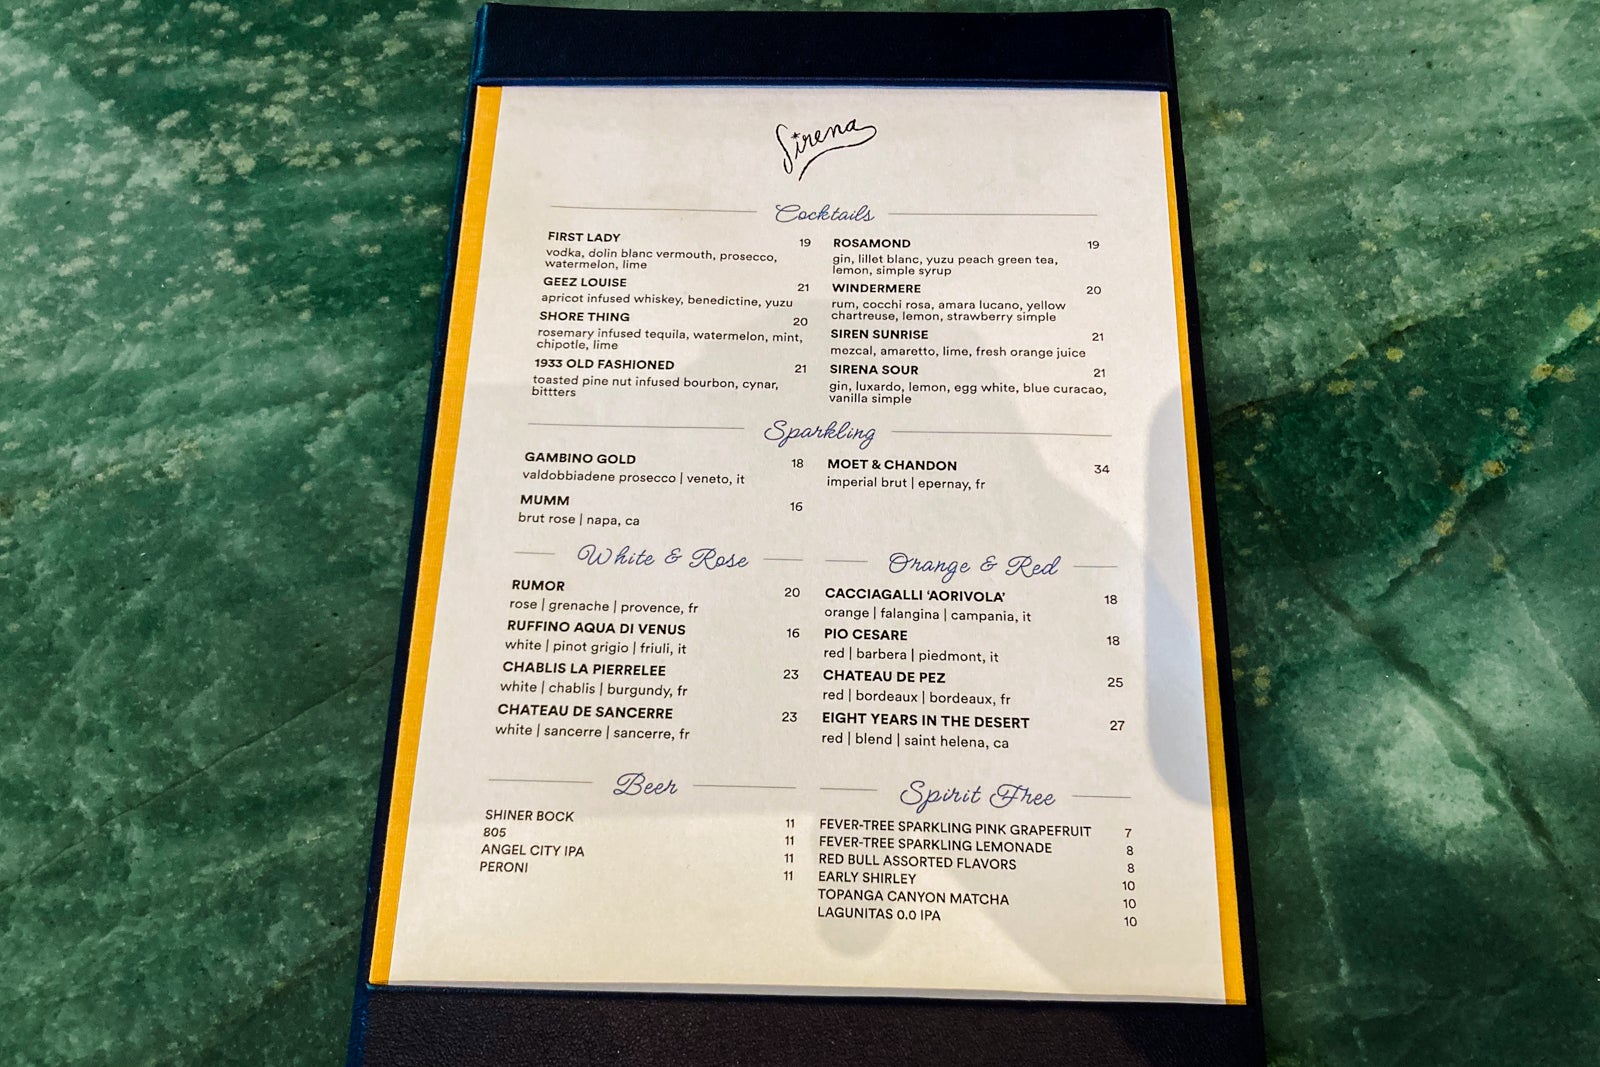 Sirena
Cocktails
FIRST LADY 19
vodka, dolin blanc vermouth, prosecco,
watermelon, lime
GEEZ LOUISE 21
apricot infused whiskey, benedictine, yuzu
SHORE THING 20
rosemary infused tequila, watermelon, mint,
chipotle, lime
1933 OLD FASHIONED 21
toasted pine nut infused bourbon, cynar,
bittters
ROSAMOND 19
gin, lillet blanc, yuzu peach green tea,
lemon, simple syrup
WINDERMERE 20
rum, cocchi rosa, amara lucano, yellow
chartreuse, lemon, strawberry simple
SIREN SUNRISE 21
mezcal, amaretto, lime, fresh orange juice
SIRENA SOUR 21
gin, luxardo, lemon, egg white, blue curacao,
vanilla simple
Sparkling
GAMBINO GOLD 18
valdobbiadene prosecco | veneto, it
MUMM 16
brut rose | napa, ca
MOET & CHANDON 34
imperial brut | epernay, fr
White & Rose
RUMOR 20
rose | grenache | provence, fr
RUFFINO AQUA DI VENUS 16
white | pinot grigio | friuli, it
CHABLIS LA PIERRELEE 23
white | chablis | burgundy, fr
CHATEAU DE SANCERRE 23
white | sancerre | sancerre, fr
Orange & Red
CACCIAGALLI ‘AORIVOLA’ 18
orange | falangina | campania, it
PIO CESARE 18
red | barbera | piedmont, it
CHATEAU DE PEZ 25
red | bordeaux | bordeaux, fr
EIGHT YEARS IN THE DESERT 27
red | blend | saint helena, ca
Beer
SHINER BOCK 11
805 11
ANGEL CITY IPA 11
PERONI 11
Spirit Free
FEVER-TREE SPARKLING PINK GRAPEFRUIT 7
FEVER-TREE SPARKLING LEMONADE 8
RED BULL ASSORTED FLAVORS 8
EARLY SHIRLEY 10
TOPANGA CANYON MATCHA 10
LAGUNITAS 0.0 IPA 10